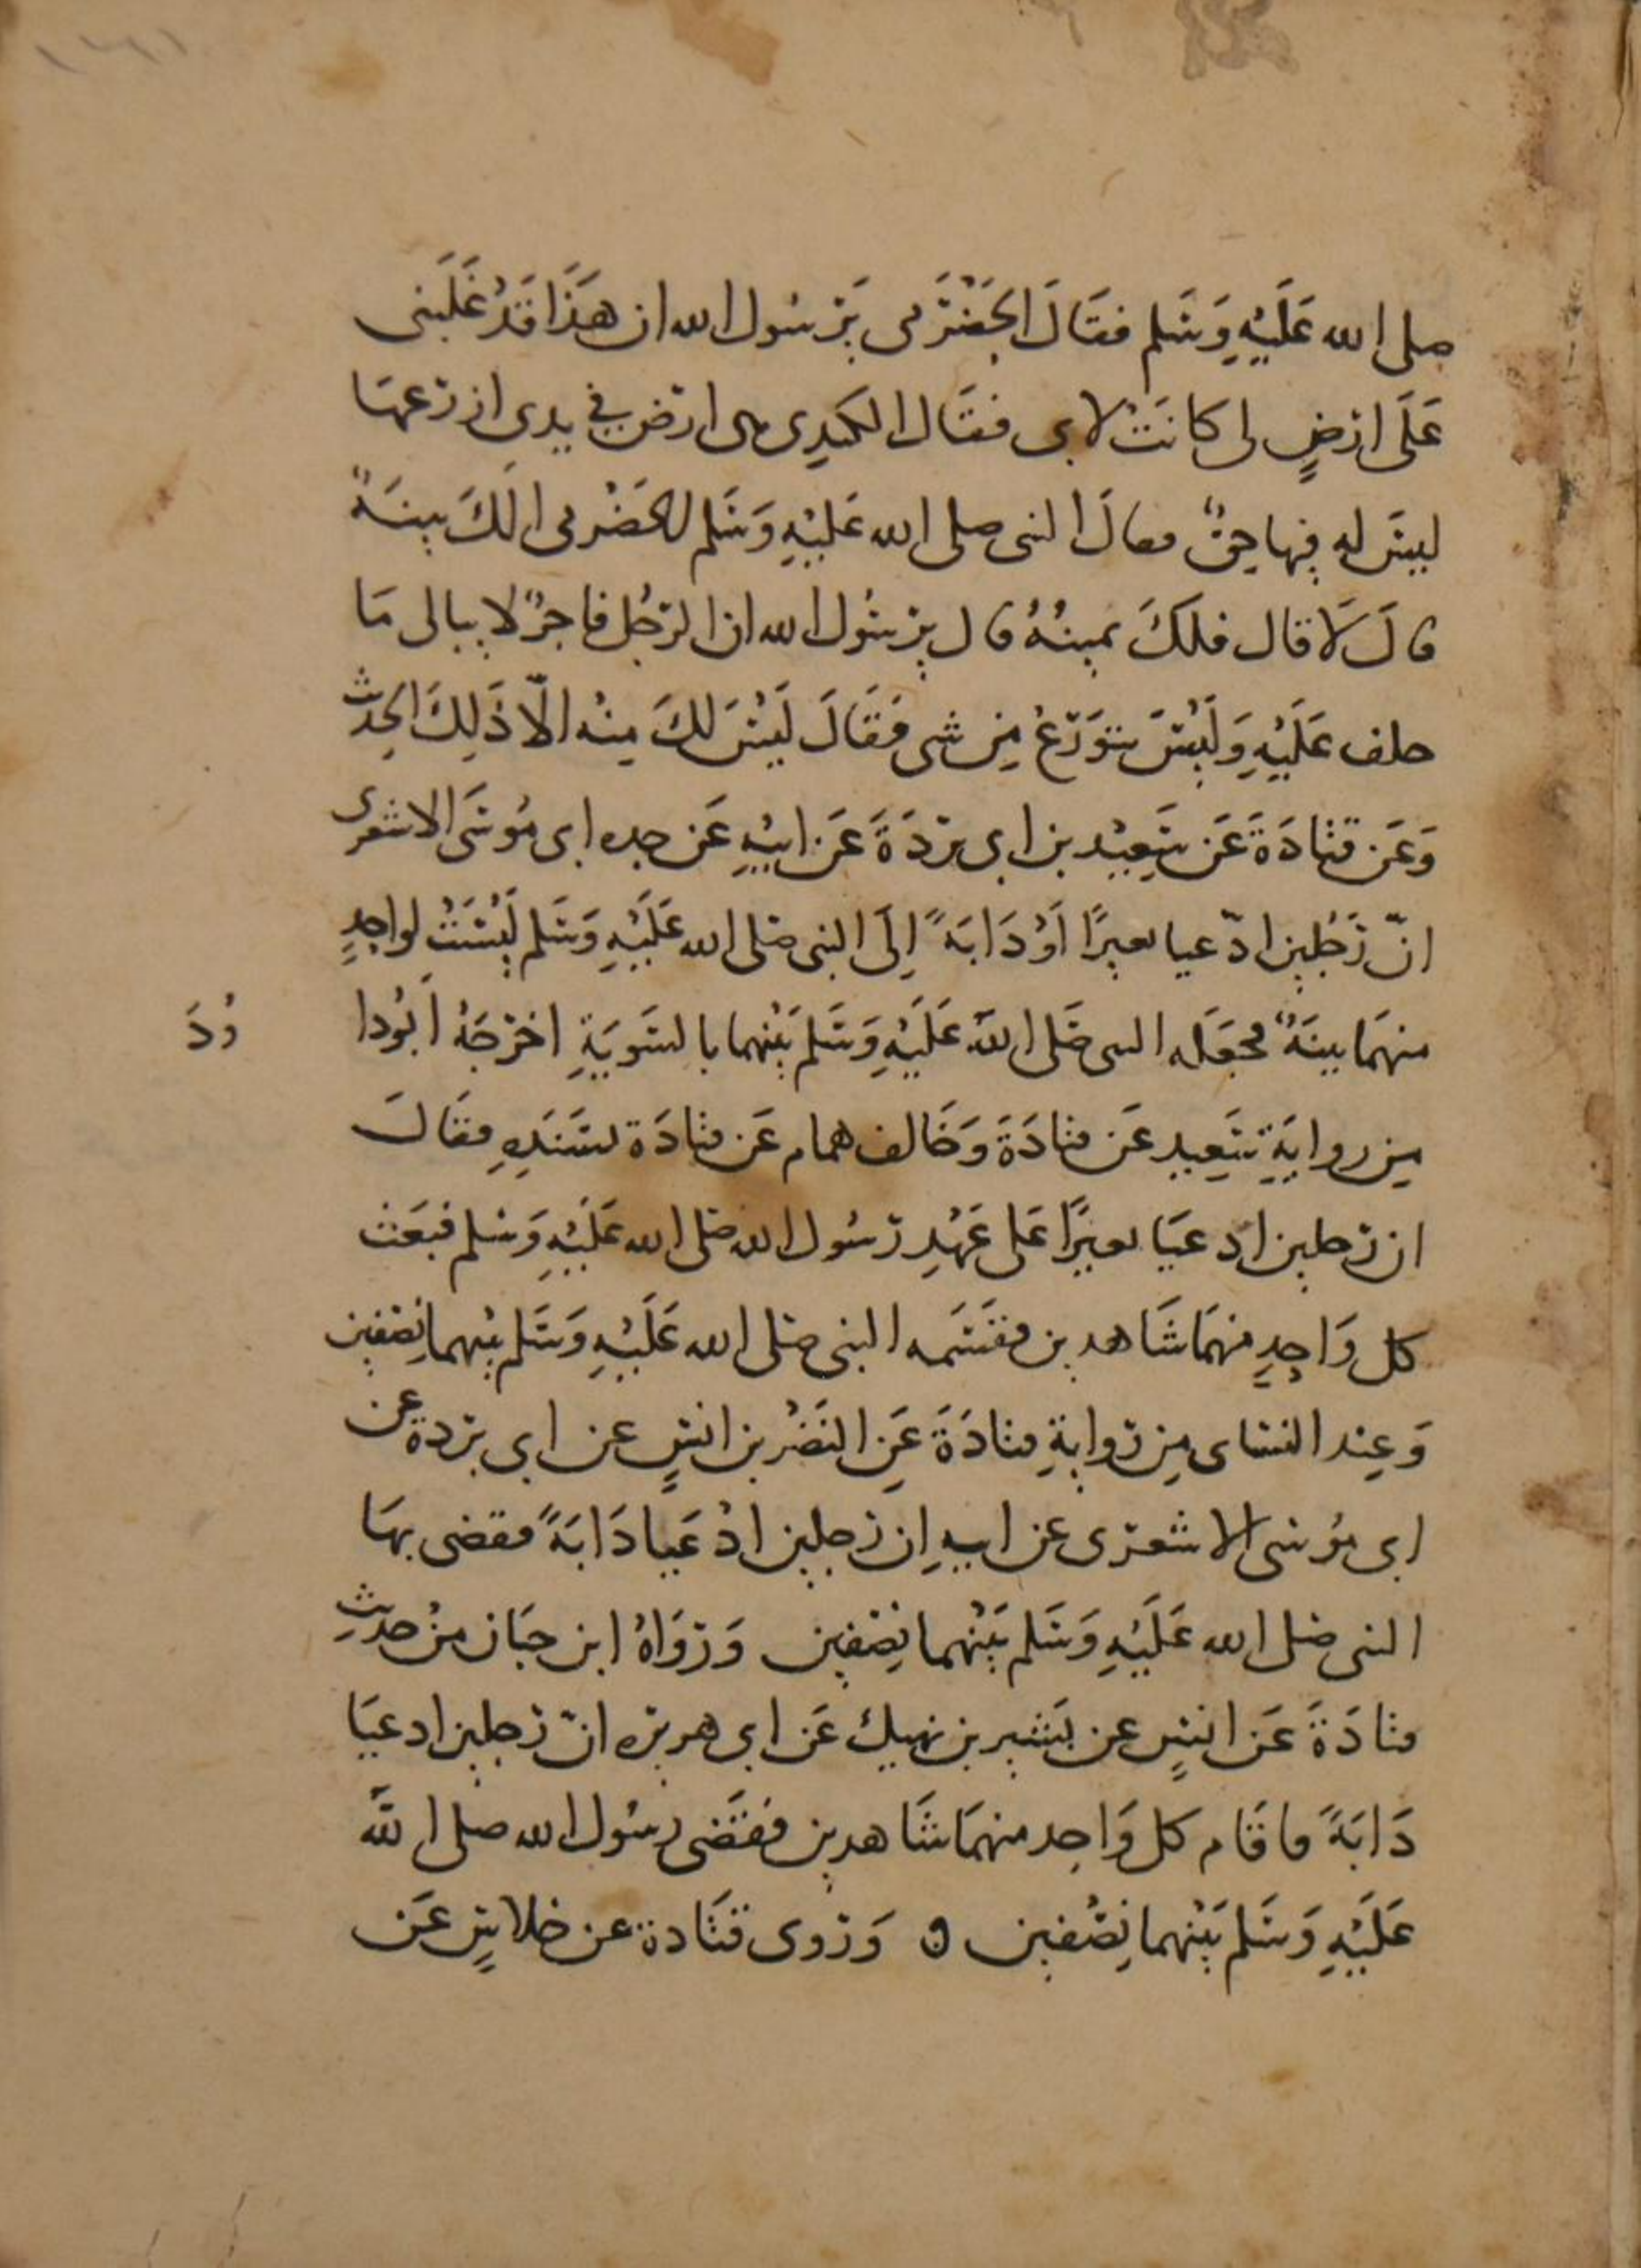 صلى الله عَلَيْهِ وَسَلم فقَالَ الحَضْرَمى يَرسُول الله ان هَذَا قَدْ غَلَبَنى
عَلَى ارْضٍ لى كانَتْ لابى فقَال الكندِى هى ارض فِي يدى ازرعهَا
ليسَ له فِيها حقٌ فقالَ النبى صلى الله عَليْهِ وَسَلم للحَضْرمى الَكَ بينَةٌ
قالَ لَا قال فلَكَ يمينُهُ قال يرسُول الله ان الرجُل فاجرٌ لا يبالى مَا
حلف عَلَيْهِ وَلَيْسَ يتَوَرّعُ مِن شى فقَالَ لَيْسَ لكَ مِنه الّا ذَلِكَ الحديث
وَعَن قتادَةَ عَن سَعِيْد بن ابى بردَةَ عَن ابيْهِ عَن جده ابى مُوسَى الاشعرى
انّ رَجُلين ادّعيا بعيرًا اَوْ دَابَةً اِلَى النبى صلى الله عَلَيْهِ وَسَلم لَيْسَتْ لواحِدٍ
منهمَا بينَةٌ فجعَله النبى صَلى اللهُ عَلَيْهِ وَسَلم بَيْنهما بالسَوِيَةِ اخرَجَهُ اَبُودا
وُدَ
مِن روايَةِ سَعِيد عَن قتادَةَ وَخَالف همام عَن قتادَة بسَنَدِهِ فقَالَ
ان رَجلين ادعيَا بعيرًا عَلى عَهْدِ رَسُول الله صلى الله عَلَيْهِ وَسَلم فبَعَث
كل وَاحِدٍ منهمَا شَاهدين فقَسَمه النبى صلى الله عَلَيْهِ وَسَلم بيْنهما نِصْفين
وَعِند النسَاى مِن روايةِ قتادَةَ عَنِ النَضْر بن انسٍ عن ابى بردة عن
ابى مُوسَى الاشعرى عن ابيهِ اِن رجلين ادْعَيا دَابَةً فقضى بهَا
النبى صلى الله عَلَيْهِ وَسَلم بَيْنهما نِصْفين وَرَوَاهُ ابن حبَان منْ حديثِ
قتادَةَ عَن انسٍ عن بَشير بن نهيك عَن ابى هريره انّ رجلين ادعيَا
دَابَةً فاقَام كل وَاحِد منهمَا شَاهدين فقَضَى رسُول الله صلى اللهُ
عَلَيْهِ وَسَلم بَيْنهما نِصْفين ه وَرَوى قتَادة عن خلاسٍ عَن